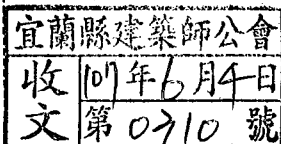 宜蘭縣建築師公會
收文
107年6月4日
第0710號